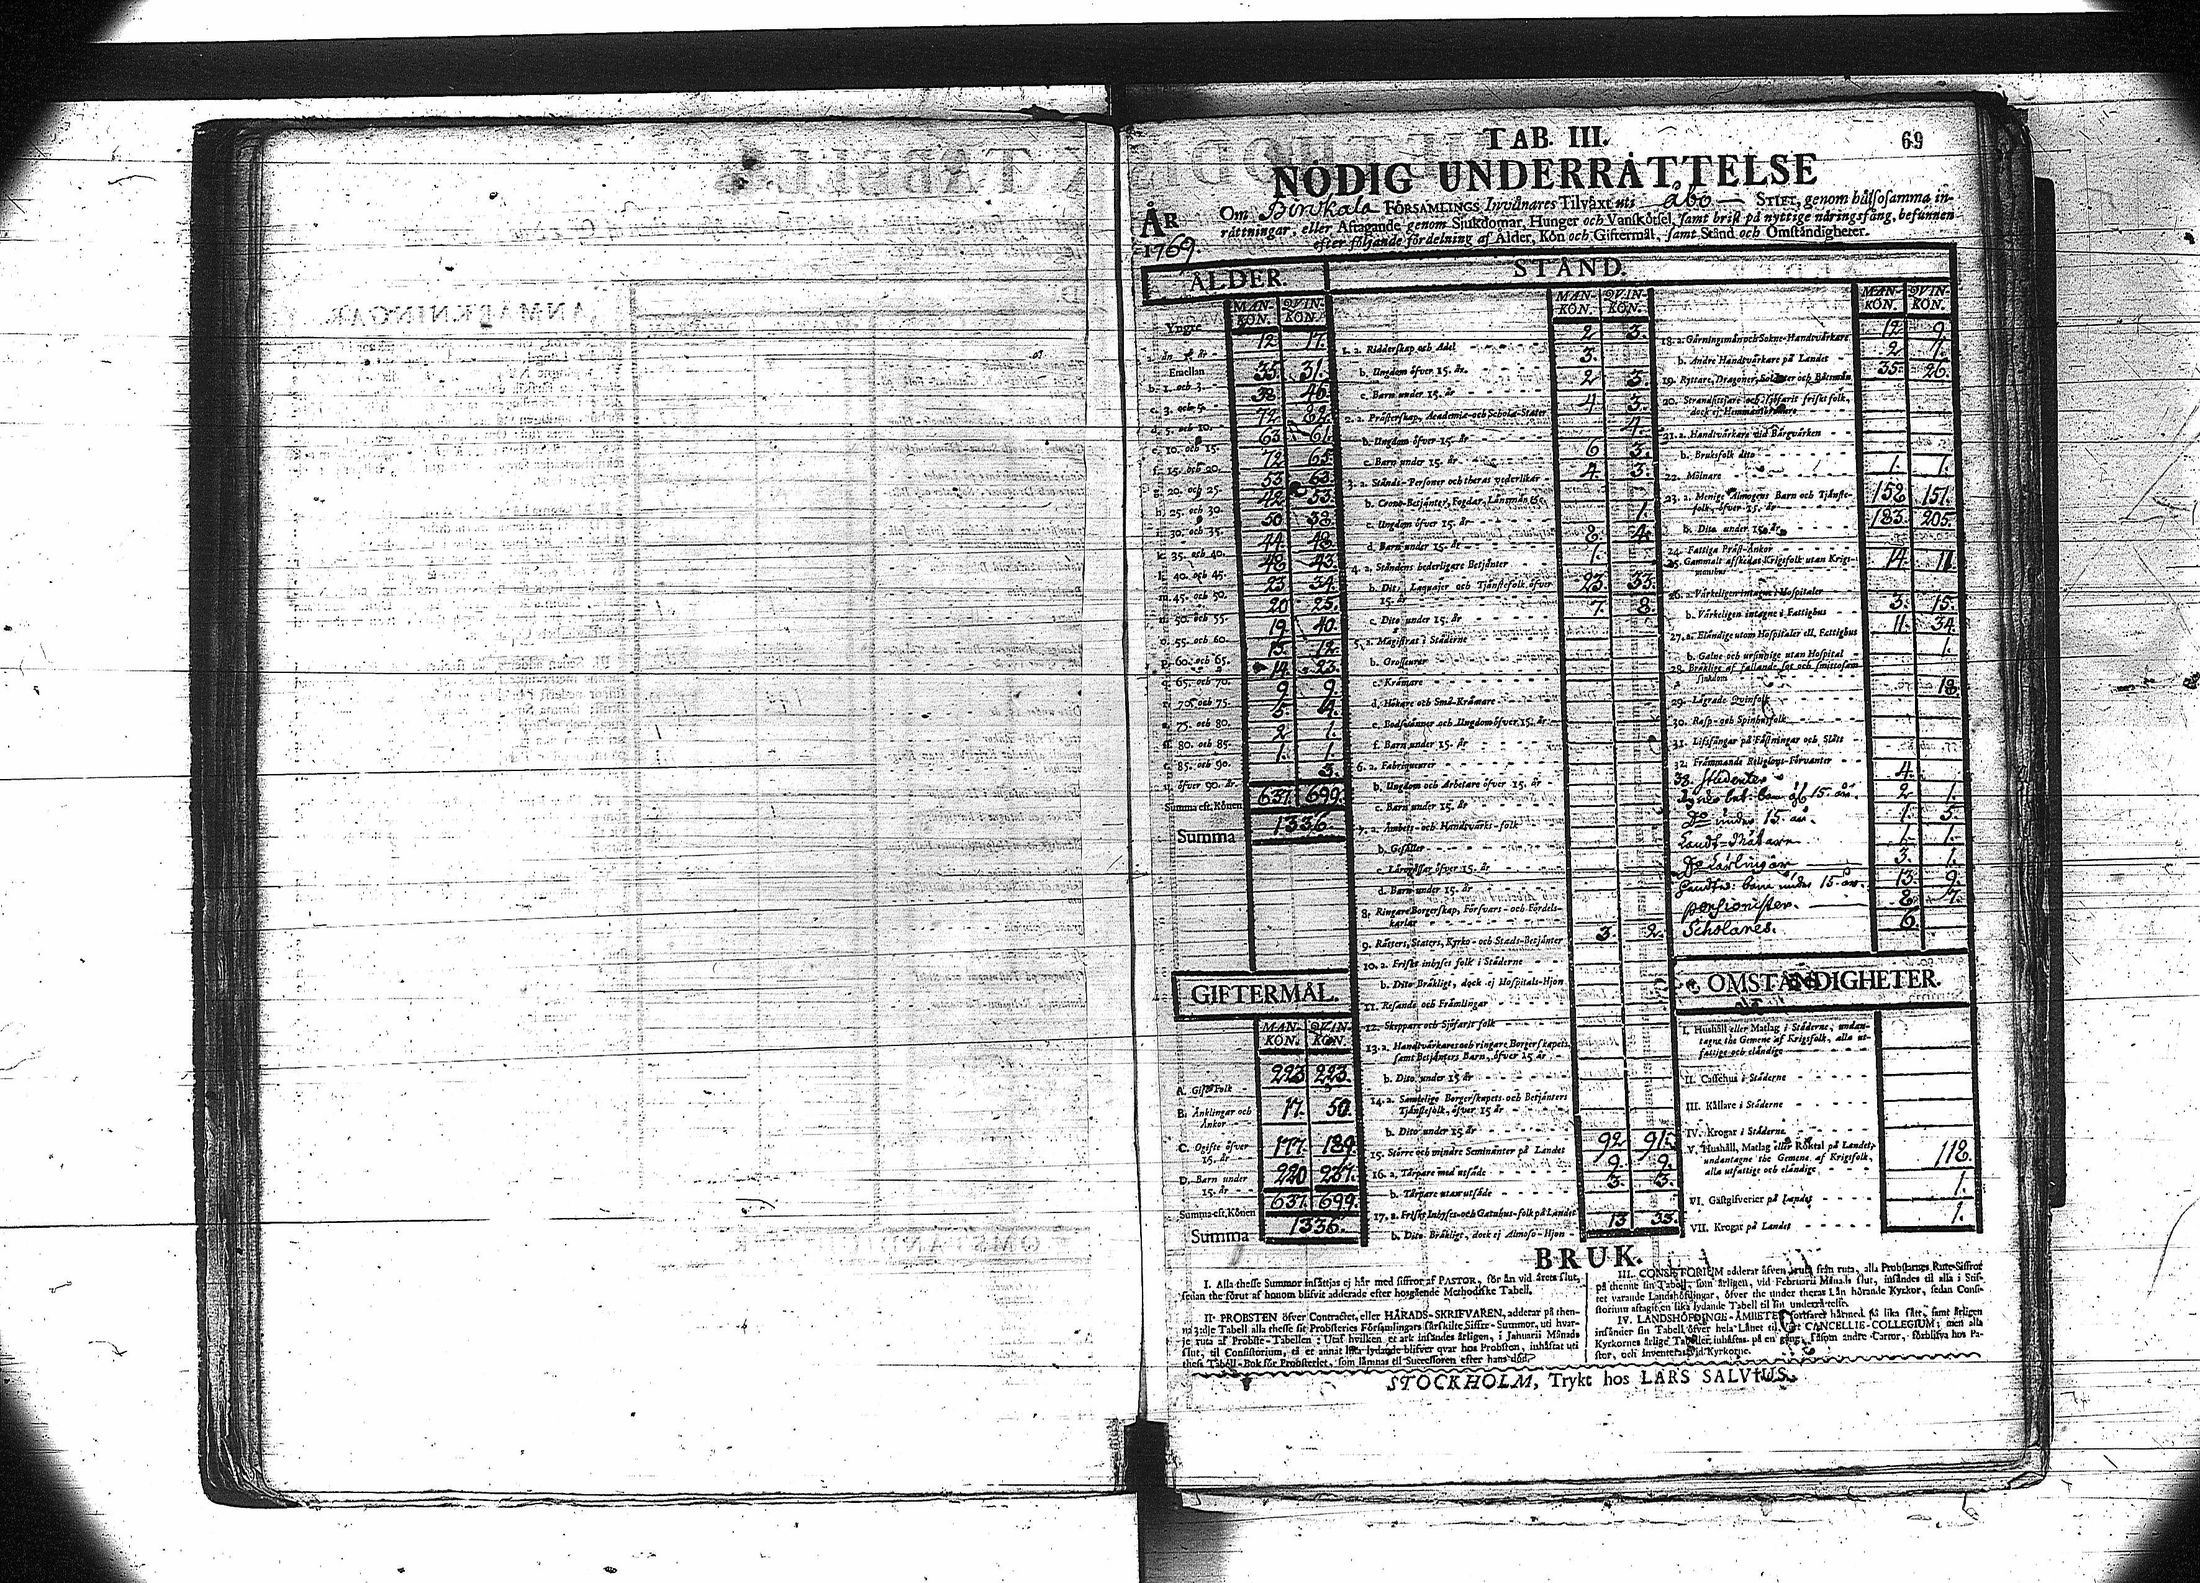 TAB. III.
69
NÖDIG UNDERRÄTTELSE
ÅR 1769.
Om Birkala FÖRSAMLINGS Invånares Tilväxt uti Åbo STIFT, genom hälsosamma in-
rättningar, eller Aftagande genom Sjukdomar, Hunger och Vanskötsel, samt brist på nyttige näringsfång, befunnen
efter följande fördelning af Ålder, Kön och Giftermål, samt Stånd och Omständigheter.
ÅLDER.
MAN-KÖN. QVIN-KÖN.
Yngre
än 1 år 12 17.
Emellan
b. 1. och 3. 35. 31.
c. 3. och 5. 38 46.
d. 5. och 10. 72 82.
e. 10. och 15. 63 61.
f. 15. och 20. 72 65
g. 20. och 25. 55 63.
h. 25. och 30. 42 53.
i. 30. och 35. 50 38.
k. 35. och 40. 44 48.
l. 40. och 45. 48 43.
m. 45. och 50. 23 34.
n. 50. och 55. 20 25.
o. 55. och 60. 19 40.
p. 60. och 65. 15. 12.
q. 65. och 70. 14. 23.
r. 70. och 75. 9. 9.
s. 75. och 80. 5. 4.
80. och 85. 2 1.
85. och 90. 1. 1
öfver 90. år 3.
Summa eft. Könen 637. 699.
Summa 1336.
GIFTERMÅL.
MAN-KÖN. QVIN-KÖN.
A. Gift Folk 223 223.
B. Änklingar och
Änkor 17. 50.
C. Ogifte öfver
15. år 177. 189.
D. Barn under
15. år 220 237.
Summa eft. Könen 637. 699.
Summa 1336.
STÅND.
MAN-KÖN. QVIN-KÖN.
1. a. Ridderskap och Adel 2 3.
b. Ungdom öfver 15. år. 3.
c. Barn under 15. år 2 3.
2. a. Prästerskap, Academiæ- och Scholæ-Stater 4 3.
b. Ungdom öfver 15. år 4.
c. Barn under 15. år 6 3.
3. a. Stånds-Personer och theras vederlikar 4 3.
b. Crono-Betjänter, Fogdar, Länsmän &c.
c. Ungdom öfver 15. år 1.
d. Barn under 15. år 8. 4.
4. a. Ståndens hederligare Betjänter 1.
b. Dito, Laquajer och Tjänstefolk öfver
15. år 23 33.
c. Dito under 15. år 7. 8.
5. a. Magistrat i Städerne
b. Grosseurer
c. Krämare
d. Hökare och Små-Krämare
e. Bodsvänner och Ungdom öfver 15. år
f. Barn under 15. år
6. a. Fabriqueurer
b. Ungdom och Arbetare öfver 15. år
c. Barn under 15. år
7. a. Ämbets- och Handtvärks-folk
b. Gesäller
c. Lärogåssar öfver 15. år
d. Barn under 15. år
8. Ringare Borgerskap, Försvars- och Fördels-
karlar
9. Rätters, Staters, Kyrko- och Stads-Betjänter 3. 2.
10. a. Friskt inhyses folk i Städerne
b. Dito Bräkligt, dock ej Hospitals-Hjon
11. Resande och Främlingar
12. Skeppare och Sjöfarit folk
13. a. Handtvärkares och ringare Borgerskapets,
samt Betjänters Barn, öfver 15 år
b. Dito under 15 år
14. a. Samtelige Borgerskapets och Betjänters
Tjänstefolk, öfver 15 år
b. Dito under 15 år
15. Större och mindre Seminänter på Landet 92 91.
16. a. Torpare med utsäde 9. 9.
b. Torpare utan utsäde 3. 3.
17. a. Friskt Inhyses- och Gatuhus-folk på Landet
b. Dito Bräkligt, dock ej Almoso-Hjon 13 33.
MAN-KÖN. QVIN-KÖN.
18. a. Gärningsmän och Sokne-Handtvärkare 12 9.
b. Andre Handtvärkare på Landet 2 1.
19. Ryttare, Dragoner, Soldater och Båtsmän 35. 26.
20. Strandsittare och sjöfarit friskt folk,
dock ej Hemmansbrukare
21. a. Handtvärkare vid Bärgvärken
b. Bruksfolk dito
22. Mölnare 1. 1.
23. a. Menige Almogens Barn och Tjänste-
folk, öfver 15. år 152 151.
b. Dito under 15. år 183. 205.
24. Fattiga Präst-Änkor
25. Gammalt afskedat Krigsfolk utan Krigs-
manshus 14. 11
26. a. Värkeligen intagne i Hospitaler
b. Värkeligen intagne i Fattighus 3. 15.
27. a. Eländige utom Hospitaler ell. Fattighus 11. 34
b. Galne och ursinnige utan Hospital 1.
28. Bräklige af fallande sot och smittosam
sjukdom
29. Lägrade Qvinfolk 18.
30. Rasp- och Spinhusfolk
31. Lifsfångar på Fästningar och Slått
32. Främmande Religions-Förvanter
33. Studenter 4.
bet: barn öf 15. år. 2 1.
Do under 15. år. 1. 5.
Landt-Mätare 1. 1.
Do Lärlingar 3. 1.
barn under 15. år. 13. 9.
pensionister. 8. 7.
Scholares. 6.
OMSTÄNDIGHETER.
I. Hushåll eller Matlag i Städerne, undan-
tagne the Gemene af Krigsfolk, alla ut-
fattige och eländige
II. Caffehus i Städerne
III. Källare i Städerne
IV. Krogar i Städerne
V. Hushåll, Matlag eller Röktal på Landet,
undantagne the Gemene af Krigsfolk,
alla utfattige och eländige 118.
VI. Gästgifverier på Landet 1.
VII. Krogar på Landet 1.
BRUK.
I. Alla thesse Summor insättjas ej här med siffror af PASTOR, för än vid årets slut,
sedan the förut af honom blifvit adderade efter hosgående Methodiske Tabell.
II. PROBSTEN öfver Contractet, eller HÄRADS-SKRIFVAREN, adderar på then-
na 3:dje Tabell alla thesse sit Probsteries Församlingars särskilte Siffre-Summor, uti hvar-
je ruta af Probste-Tabellen: Utaf hvilken et ark insändes årligen, i Januarii Månads
slut, til Consistorium, då et annat lika lydande blifver qvar hos Probsten, inhäftat uti
thess Tabell-Bok för Probsteriet, som lämnas til Successoren efter hans död.
III. CONSISTORIUM adderar äfven, ruta från ruta, alla Probstarnes Rute-Siffror
på thenne sin Tabell, som årligen, vid Februarii Månads slut, insändes til alla i Stif-
tet varande Landshöfdingar, öfver the under theras Län hörande Kyrkor, sedan Consi-
storium aftagit en lika lydande Tabell til sin underrättelse.
IV. LANDSHÖFDINGE-ÄMBETET fortfarer härmed på lika sätt, samt årligen
insänder sin Tabell öfver hela Länet til CANCELLIE-COLLEGIUM; men alla
Kyrkornes årlige Tabeller, inhäftas på en gång, såsom andre Cartor, förblifva hos Pa-
stor, och inventeras vid Kyrkorne.
STOCKHOLM, Trykt hos LARS SALVIUS.